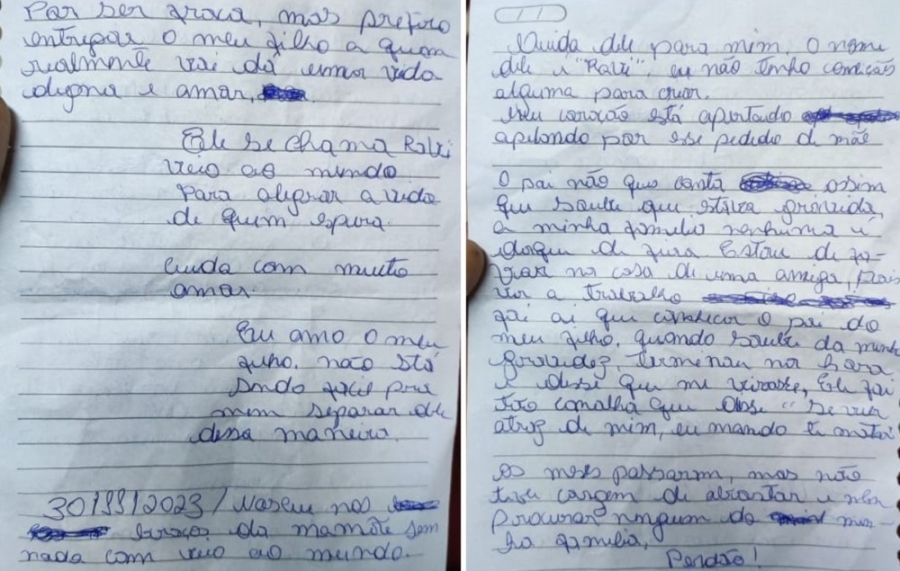 Por ser graça, mas prefiro
entregar o meu filho a quem
realmente vai da uma vida
digna e amar,
Ele se chama Ravi
veio ao mundo
Para alegrar a vida
de quem espera
cuida com muito
amor.
Eu amo o meu
filho. não stá
sendo facil pra
mim separar de
dessa maneira.
30/11/2023 / Nasceu nos
braços da mamãe sem
nada com veio ao mundo.
Cuida dele para mim, o nome
dele é "Ravi", eu não tenho condições
alguma para criar.
Meu coração está apertado
apelando por esse pedido de mãe
O pai não quis conta assim
que soube que estava grávida,
a minha familia nenhuma é
daqui de fora. Estou de
na casa de uma amiga, pois
vim a trabalho
foi ai que conheci o pai do
meu filho, quando soube da minha
gravidez, terminou na hora
e disse que me virasse, Ele foi
tão canalha que disse "Se vier
atrás de mim, eu mando te matar
os meses passaram, mas não
tive coragem de abortar e nem
procurar ninguem da mi-
ha familia,
Perdão!